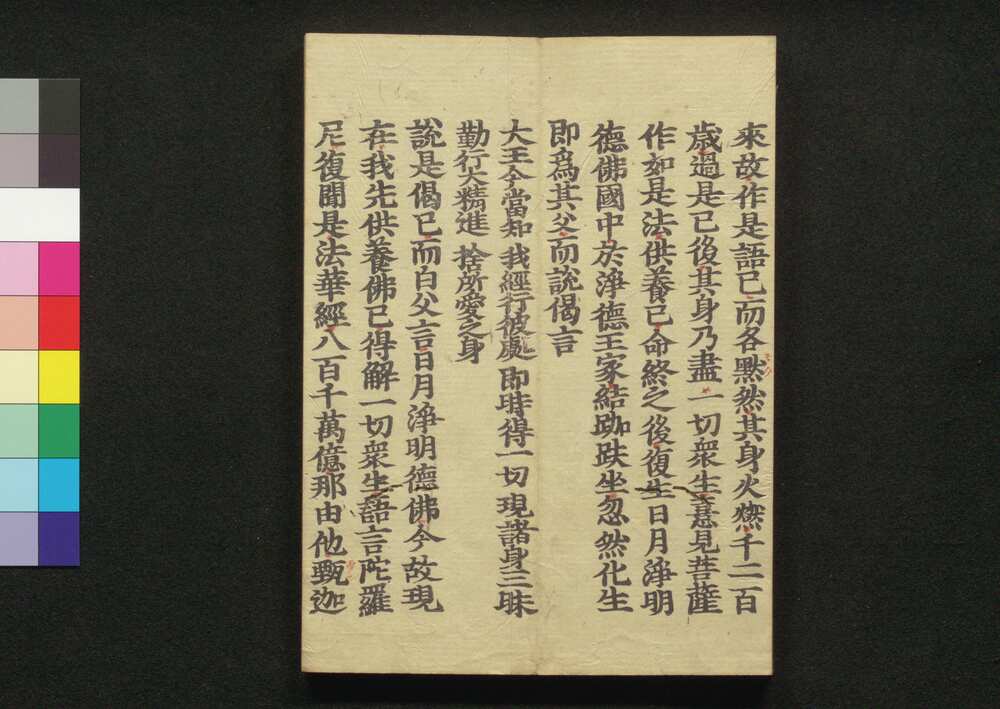 來故作是語已而各黙然其身火燃千二百
歳過是已後其身乃盡一切衆生憙見菩薩
作如是法供養已命終之後復生日月淨明
德佛國中於淨德王家結跏趺坐忽然化生
即爲其父而說偈言
大王今當知 我經行彼處 即時得一切 現諸身三昧
勤行大精進 捨所愛之身
說是偈已而白父言日月淨明德佛今故現
在我先供養佛已得解一切衆生語言陀羅
尼復聞是法華經八百千萬億那由他甄迦